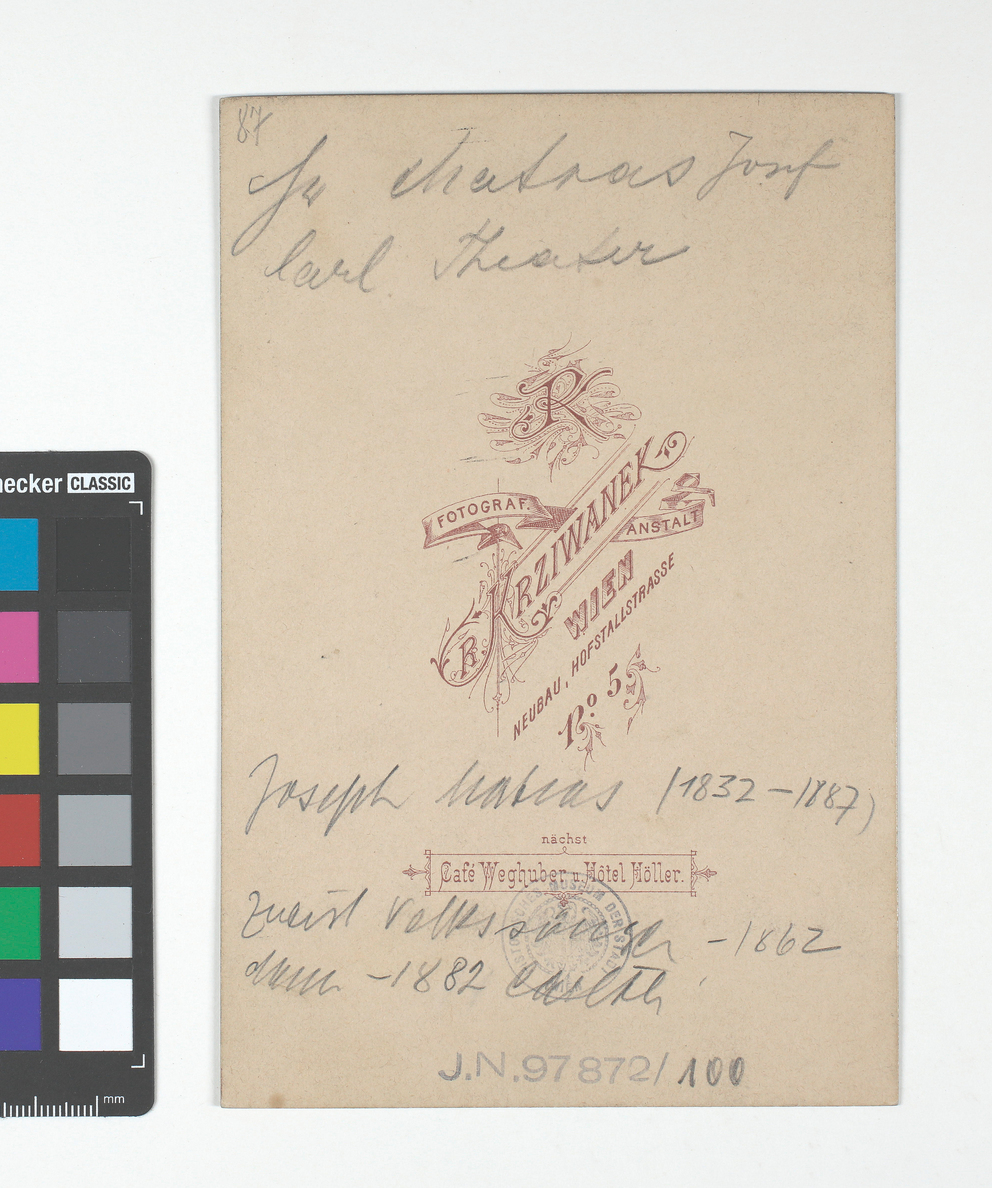 87
Matras Josf
Carl Theater
RK
FOTOGRAF. ANSTALT
R. KRZIWANEK
WIEN
NEUBAU, HOFSTALLSTRASSE
No 5.
Joseph Matras (1832-1887)
nächst
Café Weghuber u. Hôtel Höller.
zuerst Volkssänger -1862
dann -1882 Carlth.
HISTORISCHES MUSEUM DER STADT WIEN
J.N. 97872/100
necker CLASSIC
mm